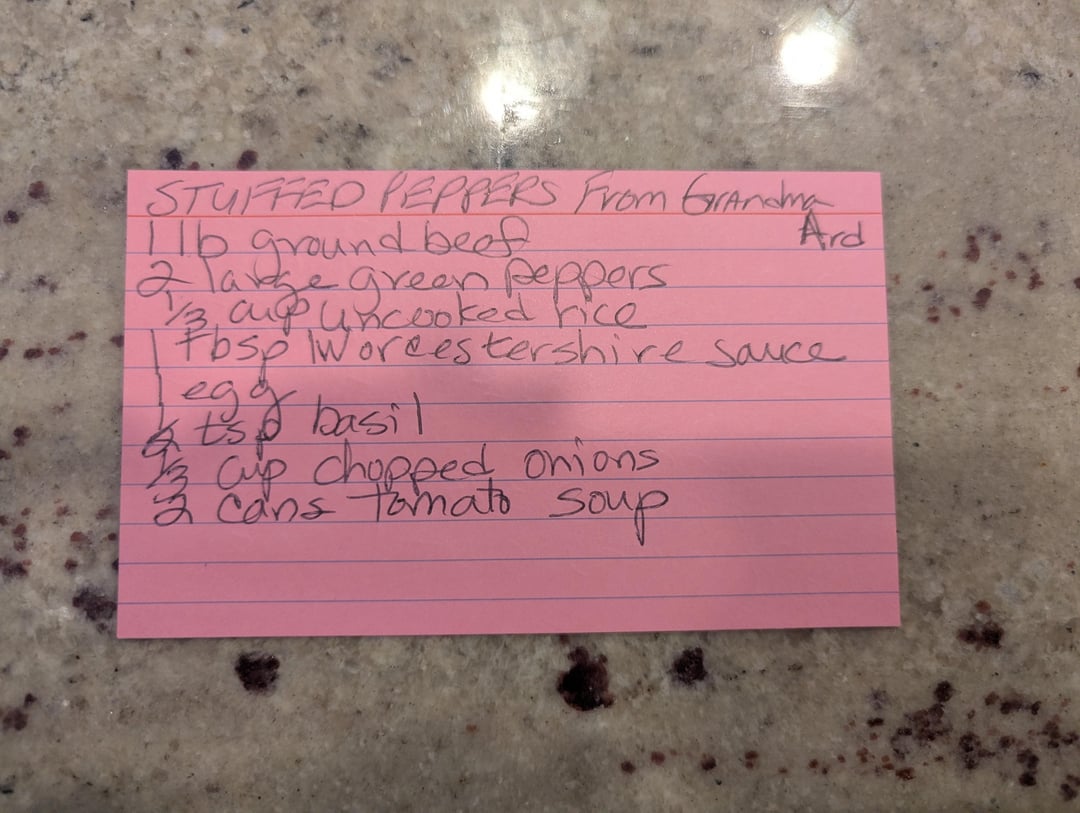 STUFFED PEPPERS From Grandma
Ard
1 lb ground beef
2 large green peppers
1/3 cup uncooked rice
1 Tbsp Worcestershire sauce
1 egg
tsp basil
1/3 cup chopped onions
2 cans tomato soup